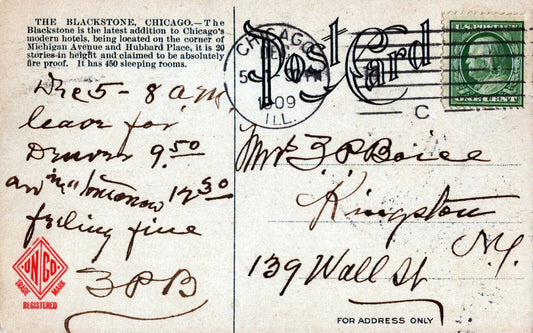 THE BLACKSTONE, CHICAGO.—The
Blackstone is the latest addition to Chicago's
modern hotels, being located on the corner of
Michigan Avenue and Hubbard Place, it is 20
stories in height and claimed to be absolutely
fire proof. It has 450 sleeping rooms.
Dec 5 - 8 a.m.
leave for
Denver 9.50
arr tomorrow 12 30
feeling fine
ZPB
UNICO
TRADE MARK
REGISTERED
Post Card
CHICAGO
1909
ILL.
C
U.S. POSTAGE
ONE CENT
Mrs ZP Boice
Kingston
N.Y.
139 Wall St
FOR ADDRESS ONLY